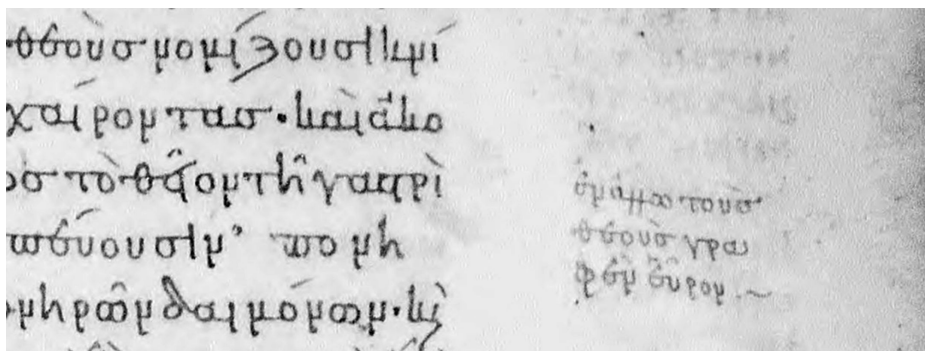 θεοὺσ νομίζουσι κνί
χαίροντασ· καὶ ἄκο
ρὸσ τὸ θεῖον τῆ γαστρὶ
πεύουσιν· πο νη
ονηρῶν δαιμόνων· κὶ
ἐν ἄλλω τοὺσ
θεοὺσ γρα
φὲν εὗρον·~